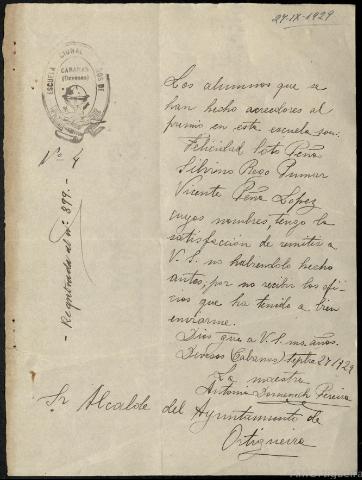 27-IX-1929
ESCUELA
CABANAS
(Devesos)
DOS DE
Nº 4
- Registrada al nº 899. -
Los alumnos que se
han hecho acreedores al
premio en esta escuela son:
Felicidad Soto Peña
Silvino Rego Pumar
Vicente Peña Lopez
cuyos nombres, tengo la
satisfacción de remitir a
V. S. no habiendolo hecho
antes, por no recibir los ofi
cios que ha tenido a bien
enviarme.
Dios gue a V. S. ms años.
Devesos Cabanas Septbre 27/1929
La maestra
Antonia Domenech Pereira
Sr Alcalde del Ayuntamiento de
Ortigueira